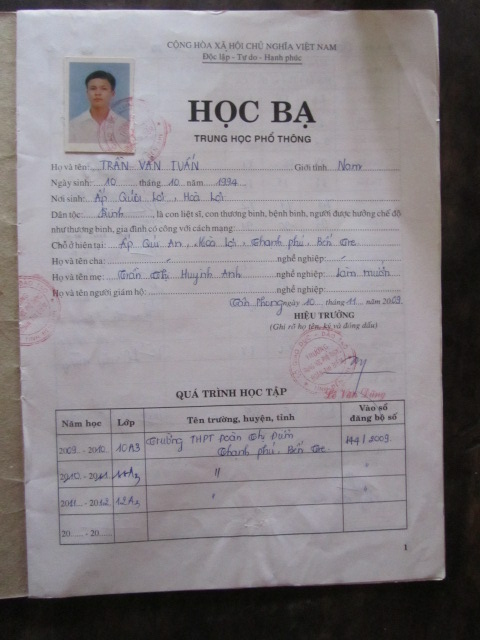 CỘNG HÒA XÃ HỘI CHỦ NGHĨA VIỆT NAM
Độc lập - Tự do - Hạnh phúc
HỌC BẠ
TRUNG HỌC PHỔ THÔNG
Họ và tên: TRẦN VĂN TUẤN Giới tính Nam
Ngày sinh: 10 tháng 10 năm 1994
Nơi sinh: Ấp Giữa Lợi, Hoà Lợi
Dân tộc: Kinh, là con liệt sĩ, con thương binh, bệnh binh, người được hưởng chế độ
như thương binh, gia đình có công với cách mạng:
Chỗ ở hiện tại: Ấp Qui An, Hoà Lợi, Thạnh phú, Bến Tre
Họ và tên cha: nghề nghiệp:
Họ và tên mẹ: Trần Thị Huỳnh Anh nghề nghiệp: Làm mướn
Họ và tên người giám hộ: nghề nghiệp:
Tân Phong ngày 10 tháng 11 năm 2009
HIỆU TRƯỞNG
(Ghi rõ họ tên, ký và đóng dấu)
QUÁ TRÌNH HỌC TẬP
Năm học Lớp Tên trường, huyện, tỉnh Vào sổ đăng bộ số
2009 - 2010 10A3 Trường THPT Đoàn Thị Điểm 144/2009
Thạnh phú, Bến Tre
2010 - 2011 11A3 〃 〃
2011 - 2012 12A3 〃 〃
20.... - 20....
1